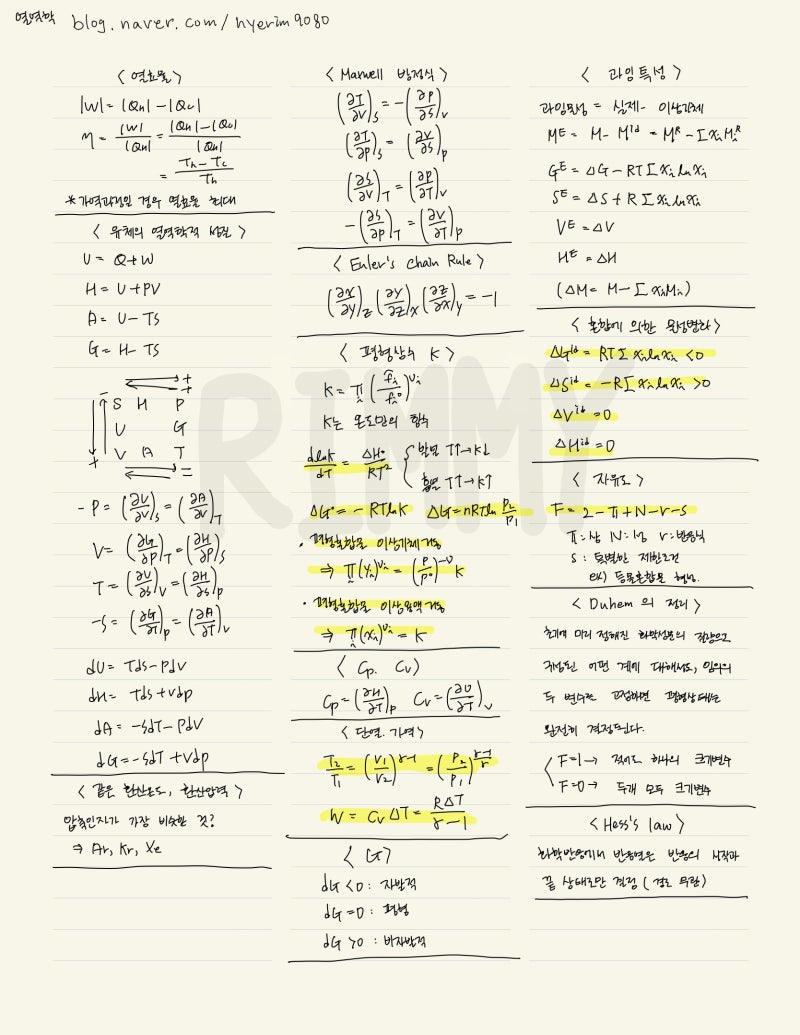 열역학 blog.naver.com/hyerim9080
RIMMY
< 열효율 >
|W| = |Qh| - |Qc|
η = |W|/|Qh| = (|Qh| - |Qc|)/|Qh|
= (Th - Tc)/Th
* 가역과정인 경우 열효율 최대
< 유체의 열역학적 성질 >
U = Q + W
H = U + PV
A = U - TS
G = H - TS
+
- S H P +
U G
+ V A T
-
-P = (∂U/∂V)S = (∂A/∂V)T
V = (∂G/∂P)T = (∂H/∂P)S
T = (∂U/∂S)V = (∂H/∂S)P
-S = (∂G/∂T)P = (∂A/∂T)V
dU = Tds - Pdv
dH = Tds + Vdp
dA = -SdT - PdV
dG = -SdT + Vdp
< 같은 환산온도, 환산압력 >
압축인자가 가장 비슷한 것?
⇒ Ar, Kr, Xe
< Maxwell 방정식 >
(∂T/∂V)S = -(∂P/∂S)V
(∂T/∂P)S = (∂V/∂S)P
(∂S/∂V)T = (∂P/∂T)V
-(∂S/∂P)T = (∂V/∂T)P
< Euler's Chain Rule >
(∂x/∂y)z (∂y/∂z)x (∂z/∂x)y = -1
< 평형상수 K >
K = π i (f̂i/fi°)^νi
K는 온도만의 함수
dlnK/dT = ΔH°/RT² { 발열 T↑→K↓
흡열 T↑→K↑
ΔG° = -RTlnK ΔG = nRTln P2/P1
· 평형혼합물 이상기체 거동
⇒ π i (yi)^νi = (P/P°)^-ν K
· 평형혼합물 이상용액 거동
⇒ π i (xi)^νi = K
< Cp, Cv >
Cp = (∂H/∂T)P Cv = (∂U/∂T)V
< 단열, 가역 >
T2/T1 = (V1/V2)^(γ-1) = (P2/P1)^((γ-1)/γ)
W = CvΔT = RΔT/(γ-1)
< G >
dG < 0 : 자발적
dG = 0 : 평형
dG > 0 : 비자발적
< 과잉특성 >
과잉물성 = 실제 - 이상기체
M^E = M - M^id = M^R - ΣxiMi^R
G^E = ΔG - RTΣxilnxi
S^E = ΔS + RΣxilnxi
V^E = ΔV
H^E = ΔH
(ΔM = M - ΣxiMi)
< 혼합에 의한 물성변화 >
ΔG^id = RTΣxilnxi < 0
ΔS^id = -RΣxilnxi > 0
ΔV^id = 0
ΔH^id = 0
< 자유도 >
F = 2 - π + N - r - s
π : 상 N : 성 r : 반응식
s : 특별한 제한조건
ex) 등몰혼합물 형성.
< Duhem의 정리 >
초기에 미리 정해진 화학성분의 질량으로
구성된 어떤 계에 대해서도, 임의의
두 변수를 고정하면 평형상태는
완전히 결정된다.
F=1 → 적어도 하나의 크기변수
F=0 → 두개 모두 크기변수
< Hess's law >
화학반응에서 반응열은 반응의 시작과
끝 상태로만 결정 (경로 무관)